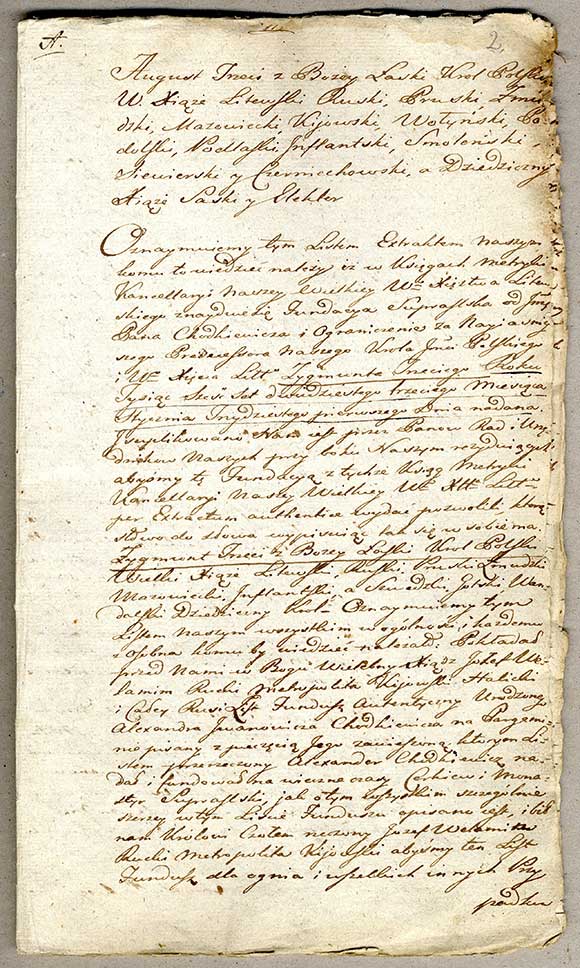 A.
2.
August Trzeci z Bożey Łaski Krol Polski
W. Xiąże Litewski Ruski, Pruski, Żmu-
dzki, Mazowiecki, Kijowski, Wołyński, Po-
dolski, Podlaski, Inflantski, Smolenski,
Siewierski y Czerniechowski, a Dziedziczny
Xiąże Saski y Elektor
Oznaymuiemy tym Listem Extraktem Naszym
komu to wiedzieć należy iż w Księgach Metryki
Kancellaryi Naszey Wielkiey Wgo Xięstwa Litew-
skiego znayduie się Fundacya Supraslska od
Pana Chodkiewicza i Ograniczenie za Nayiaśniey-
szego Predecessora Naszego Krola Jmci Polskiego
i Wgo Xięcia Litt. Zygmunta Trzeciego Roku
Tysiąc Sześć Set dwudziestego trzeciego Miesiąca
Stycznia Trzydziestego pierwszego Dnia nadana.
Nam jest przez Panow Rad i Urzę-
dnikow Naszych przy boku Naszym rezyduiących
abyśmy tę Fundacyą z tychże Xiąg Metryki
Kancellaryi Naszey Wielkiey Wgo Xtta Littgo
per Extractum authentice wydać pozwolili, ktora
słowo do słowa wypisuiąc tak się w sobie ma.
Zygmunt Trzeci z Bożey Łaski Krol Polski
Wielki Xiąże Litewski, Ruski, Pruski Zmudzki
Mazowiecki, Inflantski, a Szwedzki, Gotski, Wan-
dalski Dziedziczny Krol. Oznaymuiemy tym
Listem Naszym wszystkim w ogolności, i każdemu
z osobna komu by wiedzieć należało. Pokładał
przed Nami w Bogu Wielebny Xiądz Jozef We-
lamin Rucki Metropolita Kijowski Halicki
i Całey Rusi List Funduszu Autentyczny Urodzonego
Alexandra Iwanowicza Chodkiewicza na Pargami-
nie pisany z pieczęcią Jego zawieszoną, ktorym Li-
stem przerzeczony Alexander Chodkiewicz na-
dał i fundował na wieczne czasy Cerkiew i Mona-
styr Supraslski, jak o tym wszystkim szczegulnie
szerzey w tym Liscie Funduszu opisano jest, i bił
nam Krolowi Czołem rzeczony Jozef Welamin
Rucki Metropolita Kijowski abyśmy ten List
Fundusz dla ognia i wszelkich innych Przy
padkow